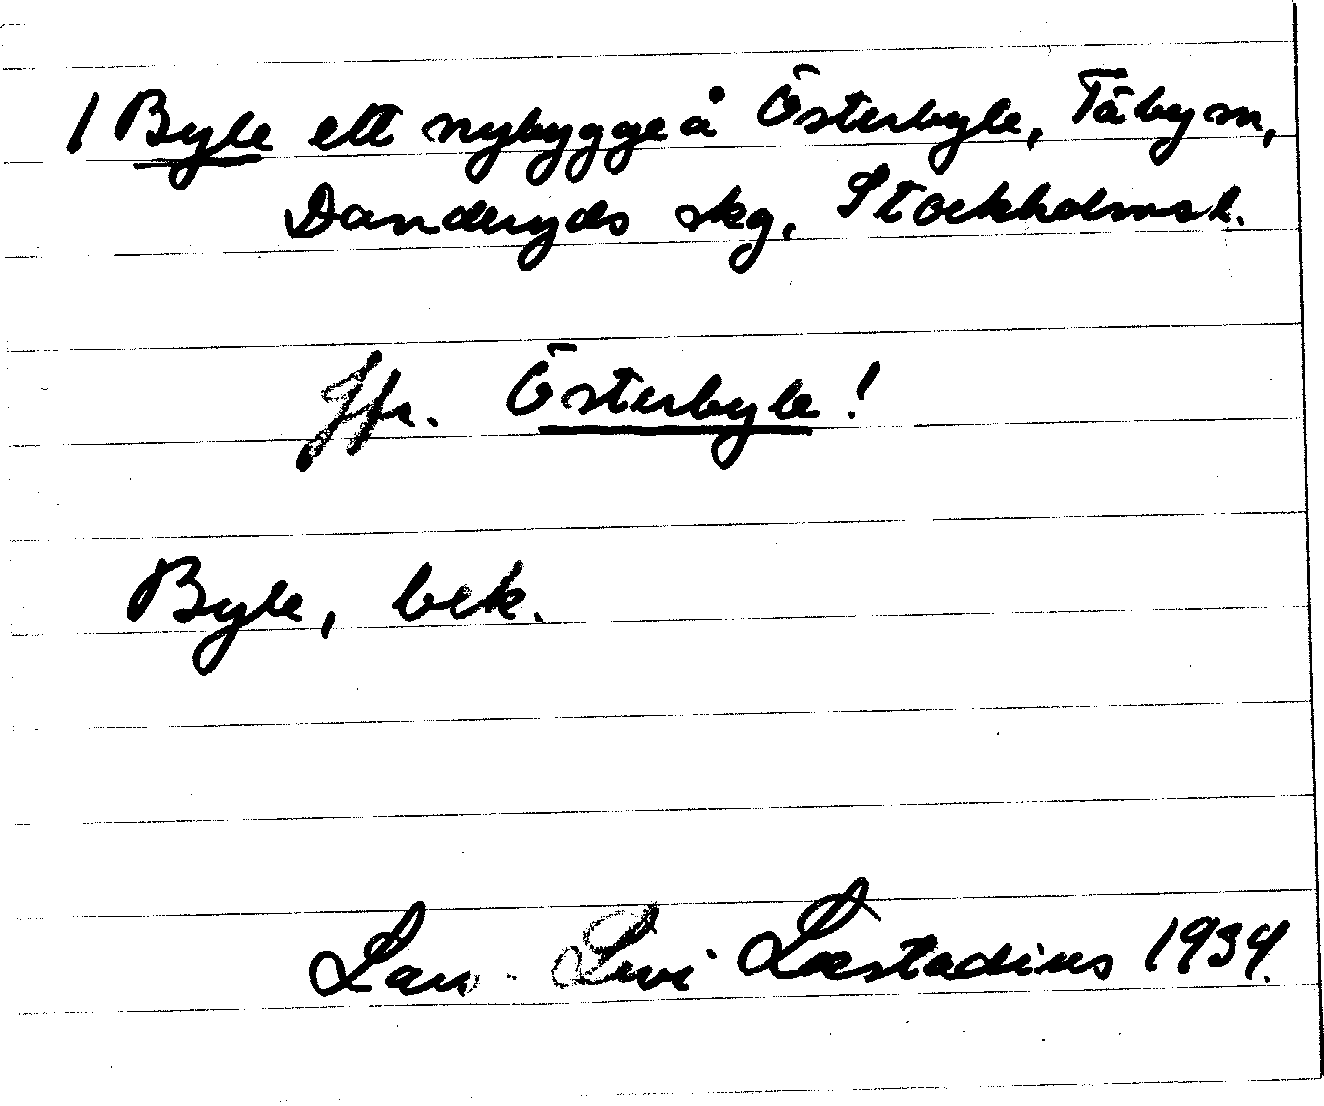 / Byle ett nybygge å Österbyle, Täby sn,
Danderyds skg, Stockholms l.
Jfr. Österbyle!
Byle, bek.
Lars-Levi Læstadius 1934.